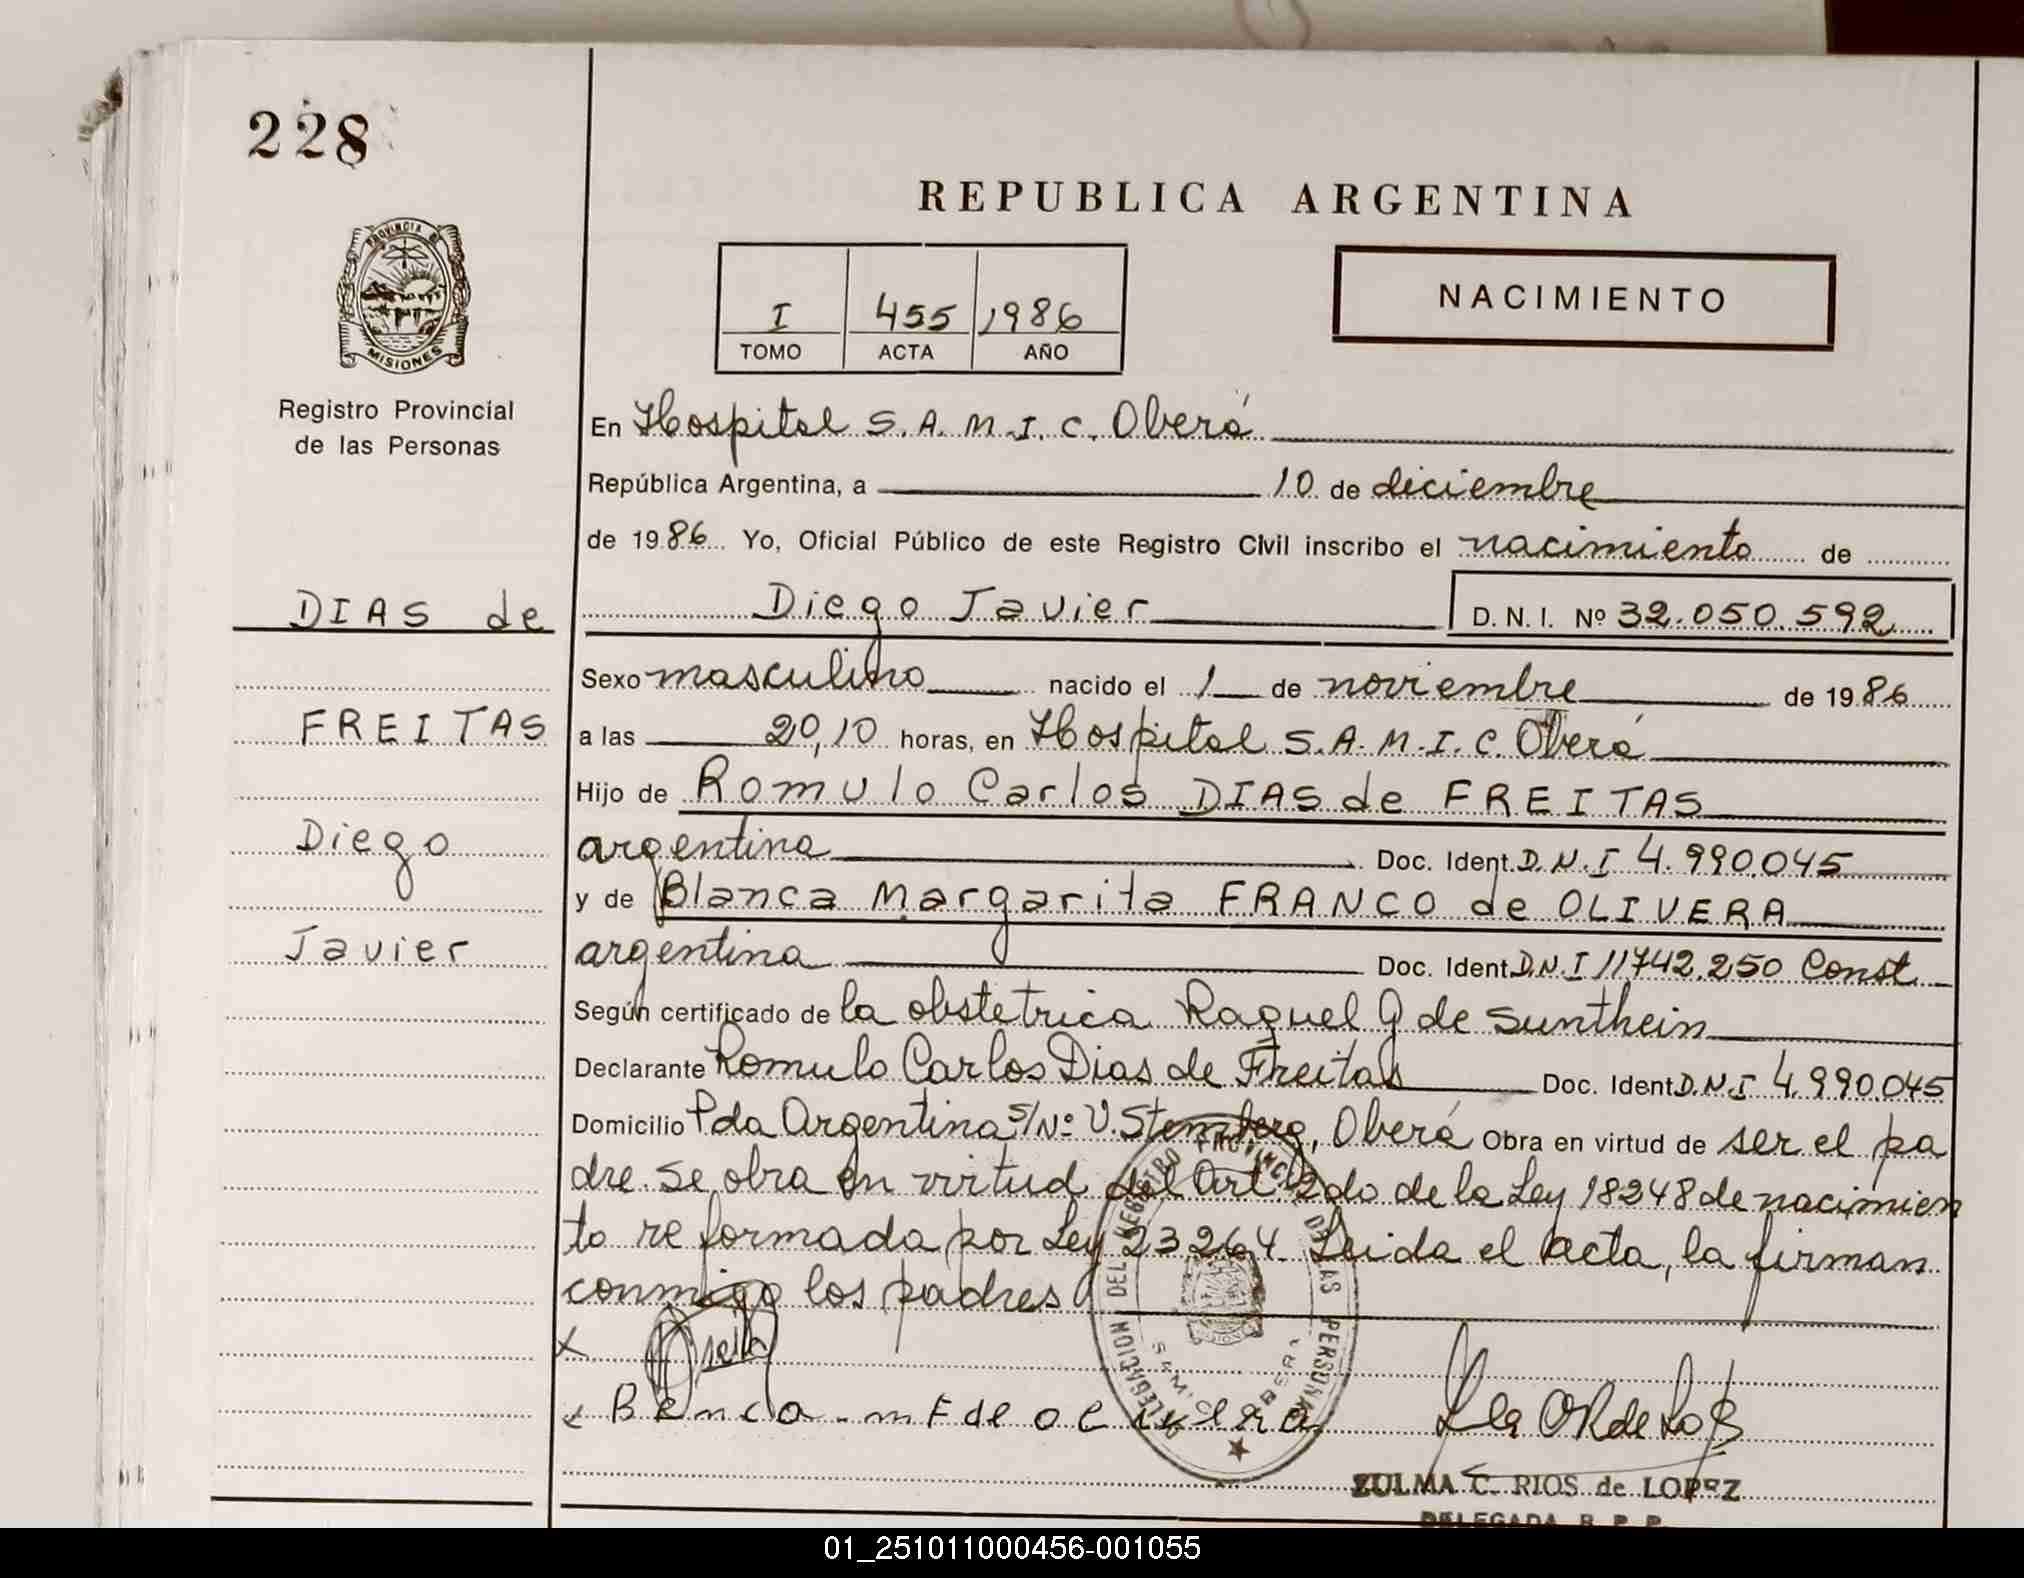 228
REPUBLICA ARGENTINA
PROVINCIA DE
MISIONES
Registro Provincial
de las Personas
I 455 1986
TOMO ACTA AÑO
NACIMIENTO
En Hospital S.A.M.I.C. Oberá
República Argentina, a 10 de diciembre
de 1986 Yo, Oficial Público de este Registro Civil inscribo el nacimiento de
DIAS de
Diego Javier D.N.I. Nº 32.050.592
Sexo masculino nacido el 1 de noviembre de 1986
FREITAS
a las 20,10 horas, en Hospital S.A.M.I.C. Oberá
Hijo de Romulo Carlos DIAS de FREITAS
Diego
argentina Doc. Ident. D.N.I 4.990.045
y de Blanca Margarita FRANCO de OLIVERA
Javier
argentina Doc. Ident. D.N.I 11742.250 Const
Según certificado de la obstetrica Raquel G de Sunthein
Declarante Romulo Carlos Dias de Freitas Doc. Ident. D.N.I 4.990.045
Domicilio Pda Argentina S/Nº V. Stemberg, Oberá Obra en virtud de ser el pa
dre. Se obra en virtud del Art 2do de la Ley 18248 de nacimien
to reformada por Ley 23264. Leida el acta, la firman
conmigo los padres
DELEGACION DEL REGISTRO PROVINCIAL DE LAS PERSONAS
SAMIC OBERA
ZULMA C. RIOS de LOPEZ
DELEGADA R. P. P.
01_251011000456-001055